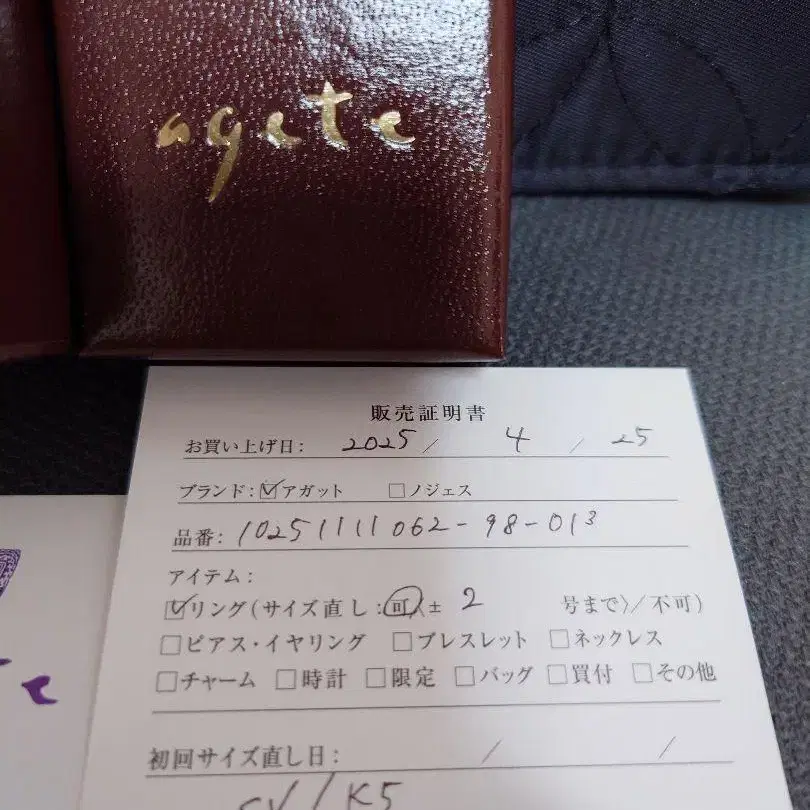 agete
販売証明書
お買い上げ日: 2025 / 4 / 25
ブランド: ☑アガット □ノジェス
品番: 10251111062-98-013
アイテム:
☑リング(サイズ直し:可(± 2 号まで)/不可)
□ピアス・イヤリング □ブレスレット □ネックレス
□チャーム □時計 □限定 □バッグ □買付 □その他
初回サイズ直し日: / /
SV/K5